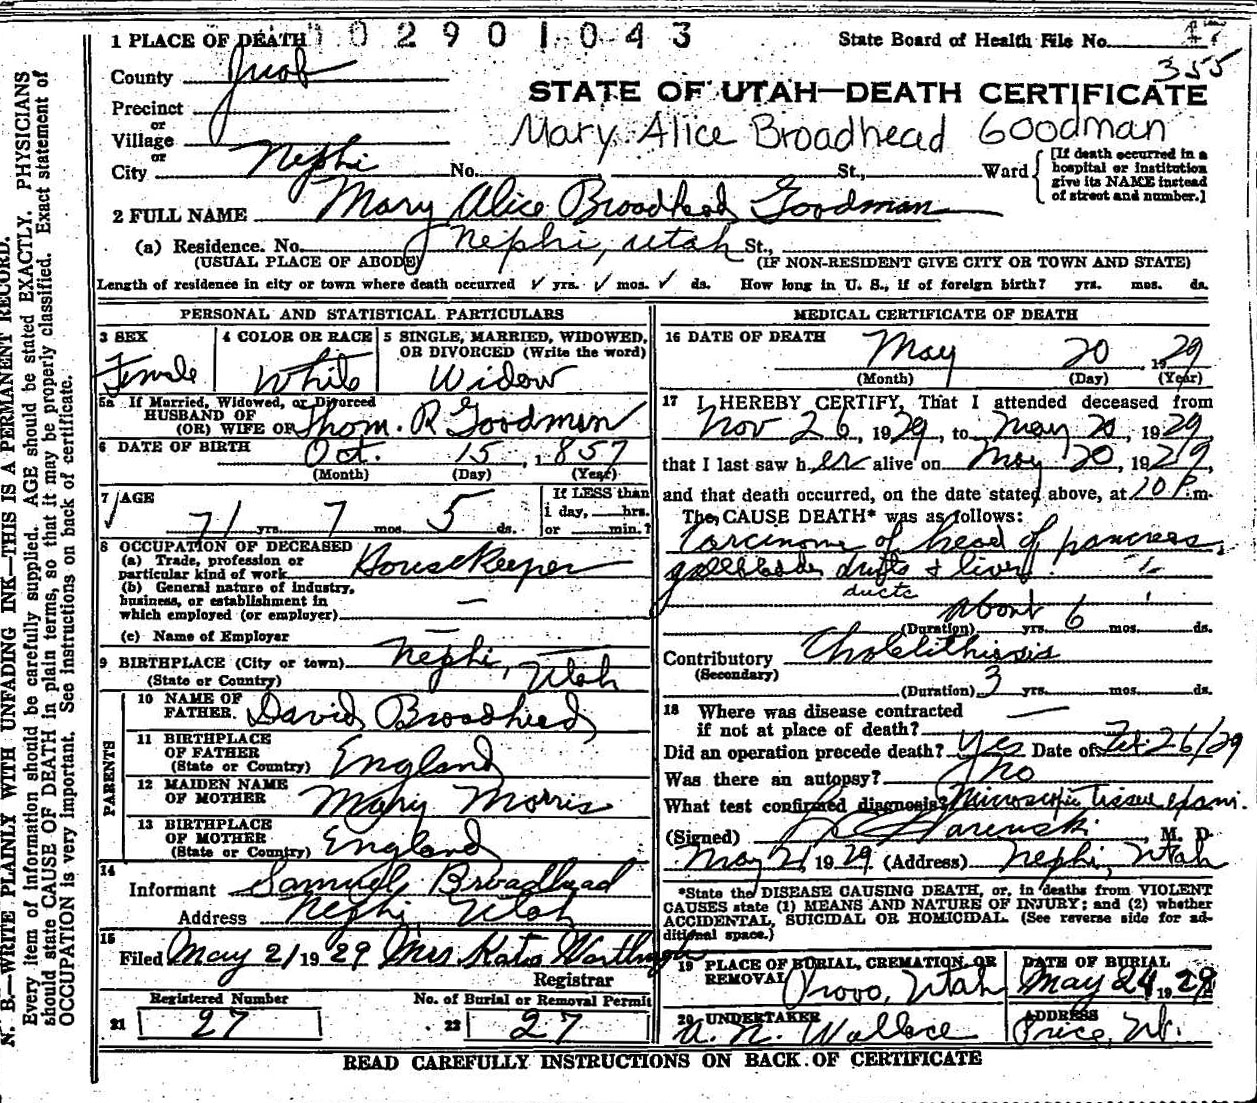 1 PLACE OF DEATH 102901043 State Board of Health File No. 17
355
County Juab
STATE OF UTAH—DEATH CERTIFICATE
Precinct
or
Village
Mary Alice Broadhead Goodman
or
City Nephi No. St., Ward [If death occurred in a hospital or institution give its NAME instead of street and number.]
2 FULL NAME Mary Alice Broadhead Goodman
(a) Residence. No. Nephi, Utah St.,
(USUAL PLACE OF ABODE) (IF NON-RESIDENT GIVE CITY OR TOWN AND STATE)
Length of residence in city or town where death occurred ✓ yrs. ✓ mos. ✓ ds. How long in U. S., if of foreign birth? yrs. mos. ds.
PERSONAL AND STATISTICAL PARTICULARS
3 SEX 4 COLOR OR RACE 5 SINGLE, MARRIED, WIDOWED,
OR DIVORCED (Write the word)
Female White Widow
5a If Married, Widowed, or Divorced
HUSBAND OF
(OR) WIFE OF Thom. R Goodman
6 DATE OF BIRTH Oct. 15, 1857
(Month) (Day) (Year)
7 AGE If LESS than
1 day, hrs.
71 yrs. 7 mos. 5 ds. or min.?
8 OCCUPATION OF DECEASED
(a) Trade, profession or
particular kind of work Housekeeper
(b) General nature of industry,
business, or establishment in
which employed (or employer) —
(c) Name of Employer —
9 BIRTHPLACE (City or town) Nephi,
(State or Country) Utah
PARENTS
10 NAME OF
FATHER. David Broadhead
11 BIRTHPLACE
OF FATHER
(State or Country) England
12 MAIDEN NAME
OF MOTHER Mary Morris
13 BIRTHPLACE
OF MOTHER
(State or Country) England
14
Informant Samuel Broadhead
Address Nephi Utah
15
Filed May 21 1929 Mrs. Kate
Registrar
Registered Number No. of Burial or Removal Permit
21 27 22 27
MEDICAL CERTIFICATE OF DEATH
16 DATE OF DEATH May 20 1929
(Month) (Day) (Year)
17 I HEREBY CERTIFY, That I attended deceased from
Nov 26, 1929, to May 20, 1929,
that I last saw her alive on May 20, 1929,
and that death occurred, on the date stated above, at 10 P.m.
The CAUSE DEATH* was as follows:
Carcinoma of head of pancreas,
gallbladder ducts & liver.
ducts
About 6
(Duration) yrs. mos. ds.
Contributory Cholelithiasis
(Secondary)
3
(Duration) yrs. mos. ds.
18 Where was disease contracted
if not at place of death? —
Did an operation precede death? Yes Date of Feb. 26/29
Was there an autopsy? No
What test confirmed diagnosis? Microscopic tissue exam.
(Signed) M. D.
May 21, 1929 (Address) Nephi, Utah
*State the DISEASE CAUSING DEATH, or, in deaths from VIOLENT
CAUSES state (1) MEANS AND NATURE OF INJURY; and (2) whether
ACCIDENTAL, SUICIDAL OR HOMICIDAL. (See reverse side for ad-
ditional space.)
19 PLACE OF BURIAL, CREMATION, OR
REMOVAL Provo, Utah
DATE OF BURIAL
May 24 1929
20 UNDERTAKER
A. N. Wallace
ADDRESS
Price, Ut.
READ CAREFULLY INSTRUCTIONS ON BACK OF CERTIFICATE
N. B.—WRITE PLAINLY WITH UNFADING INK—THIS IS A PERMANENT RECORD.
Every item of information should be carefully supplied. AGE should be stated EXACTLY. PHYSICIANS
should state CAUSE OF DEATH in plain terms, so that it may be properly classified. Exact statement of
OCCUPATION is very important. See instructions on back of certificate.